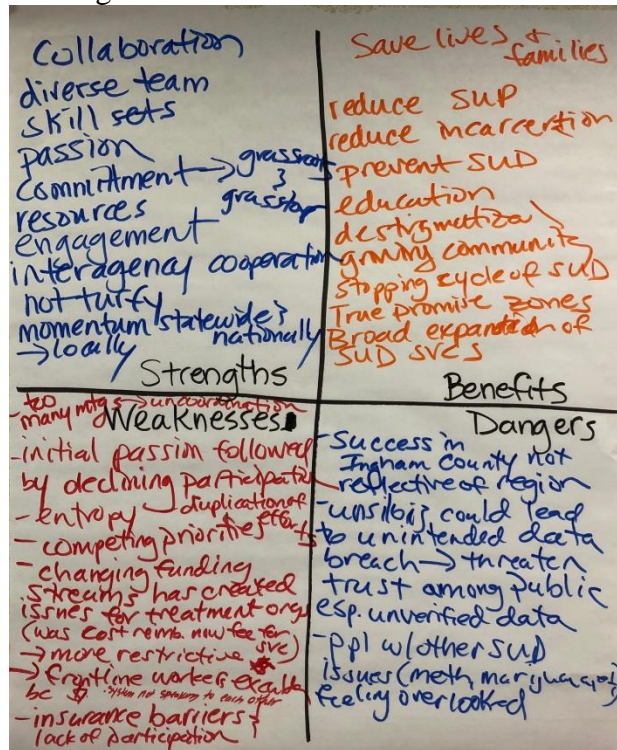 Collaboration
diverse team
skill sets
passion
commitment → grassroots
& grasstop
resources
engagement
interagency cooperation
not turfy
momentum statewide &
nationally
→ locally
Strengths
Save lives &
families
reduce SUP
reduce incarcertion
prevent SUD
education
destigmatiza
growing community
stopping cycle of SUD
True promise zones
Broad expansion of
SUD svcs
Benefits
- too many mtgs → uncoordination
Weaknesses
- initial passion followed
by declining participation
- entropy duplication of efforts
- competing priorities
- changing funding
streams has created
issues for treatment orgs
(was cost reimb. now fee for
svc)
→ more restrictive
→ frontime workers
bc $ system not speaking to each other
- insurance barriers &
lack of participation
Dangers
- Success in
Ingham County not
reflective of region
- unsiloing could lead
to unintended data
breach → threaten
trust among public
esp. unverified data
- ppl w/other SUD
issues (meth, marijuana,
feeling overlooked